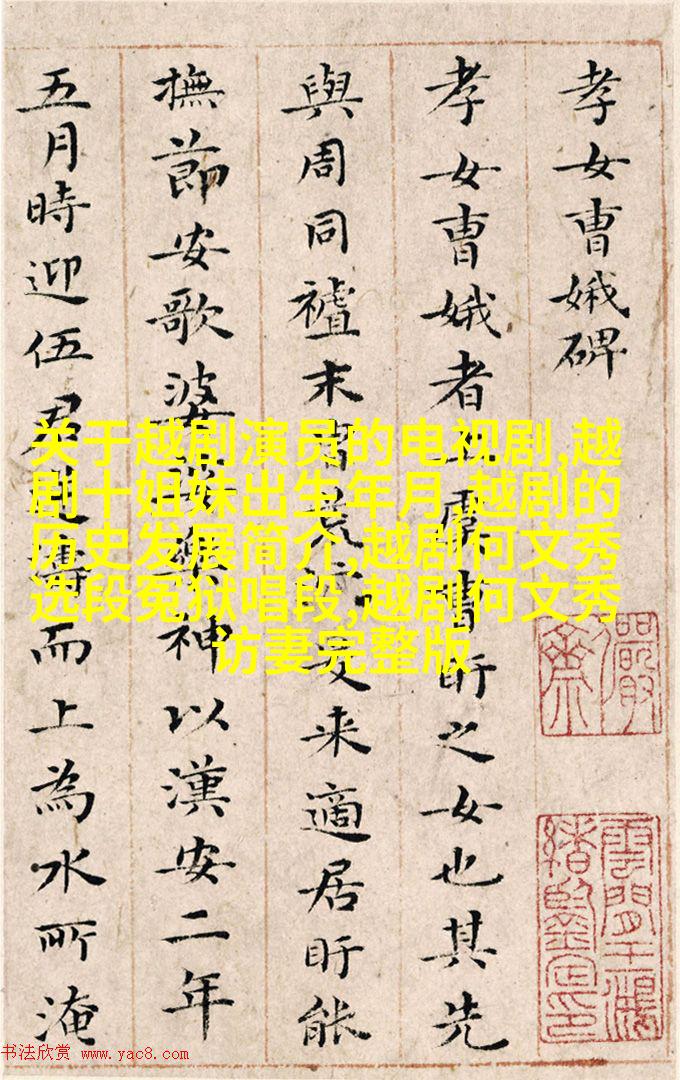 孝女曹娥碑
孝女曹娥者上虞曹盱之女也其先
與周同祖末胄荒沉爰来適居盱能
撫節安歌婆娑樂神以漢安二年
五月時迎伍君逆濤而上為水所淹
关于越剧演员的电视剧,越
剧十姐妹出生年月,越剧的
历史发展简介,越剧何文秀
选段冤狱唱段,越剧何文秀
访妻完整版
书法欣赏 www.yac8.com